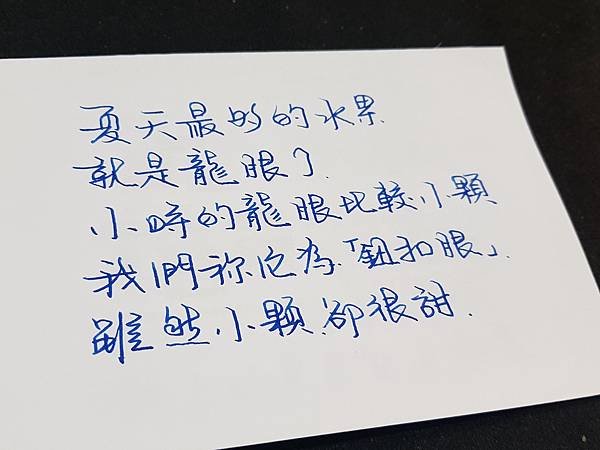 夏天最好的水果
就是龍眼了.
小時的龍眼比較小顆
我們稱它為「鈕扣眼」.
雖然小顆卻很甜.